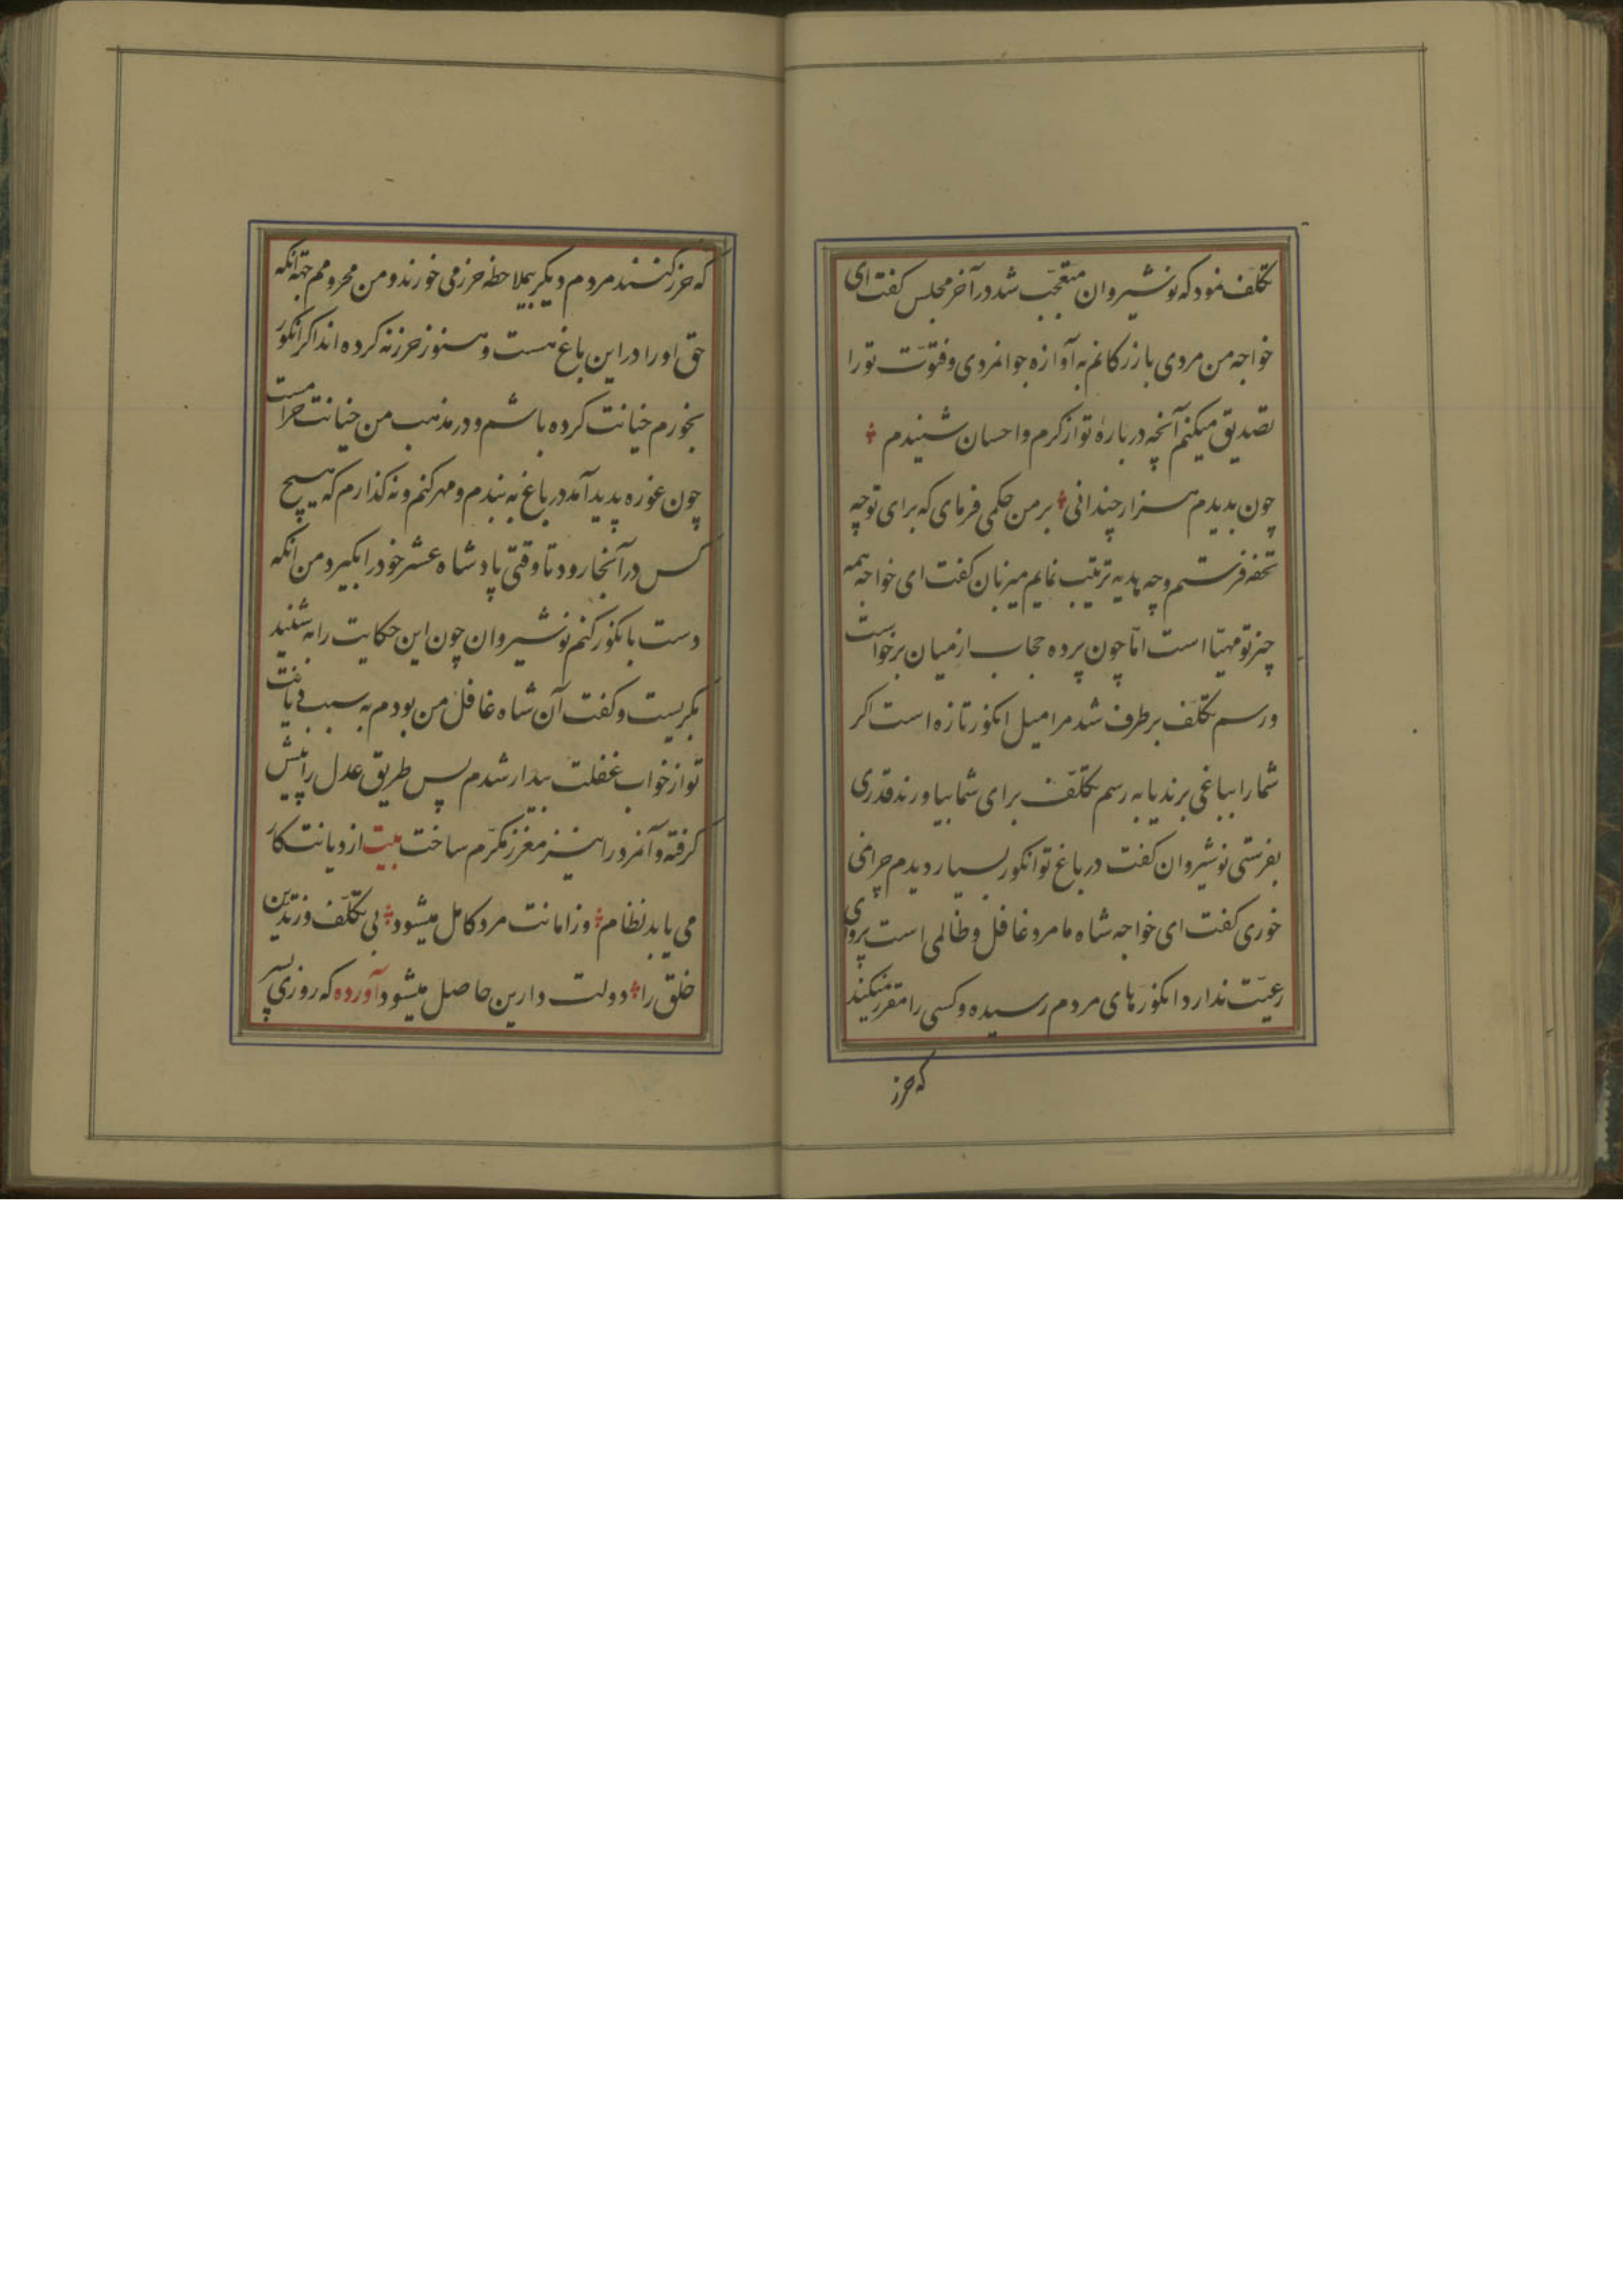 تکلّف نمود که نوشیروان متعجّب شد در آخر مجلس کفت ای
خواجه من مردی بازرکانم به آوازه جوانمردی و فتوّت تو را
تصدیق میکنم آنچه در بارهٔ تو از کرم و احسان شنیدم
چون بدیدم هزار چندانی بر من حکمی فرمای که برای تو چه
تحفه فرستم و چه هدیه ترتیب نمایم میزبان کفت ای خواجه همه
چیز تو مهیّا است امّا چون پرده حجاب از میان برخواست
و رسم تکلّف برطرف شد مرا میل انکور تازه است اکر
شما را بباغی برند یا به رسم تکلّف برای شما بیاورند قدری
بفرستی نوشیروان کفت در باغ تو انکور بسیار دیدم چرا نمی
خوری کفت ای خواجه شاه ما مرد غافل و ظالمی است پروای
رعیّت ندارد انکورهای مردم رسیده و کسی را مقرر نمیکند
که حرز
که حرز کنند مردم دیکر بیملاحظه حرز می خورند و من محرومم جهة آنکه
حق او را در این باغ هست و هنوز حرز نه کرده اند اکر انکور
بخورم خیانت کرده باشم و در مذهب من خیانت حرامست
چون غوره پدید آمد در باغ به بندم و مهر کنم و نه کذارم که هیچ
کس در آنجا رود تا وقتی پادشاه عشر خود را بکیرد من آنکه
دست بانکور کنم نوشیروان چون این حکایت را به شنید
بکریست و کفت آن شاه غافل من بودم به سبب دیانت
تو از خواب غفلت بیدار شدم پس طریق عدل را پیش
کرفته و آنمرد را نیز معزز مکرّم ساخت بیت از دیانت کار
می یابد نظام وز امانت مرد کامل میشود بی تکلّف وز تدین
خلق را دولت دارین حاصل میشود آورده که روزی پسر